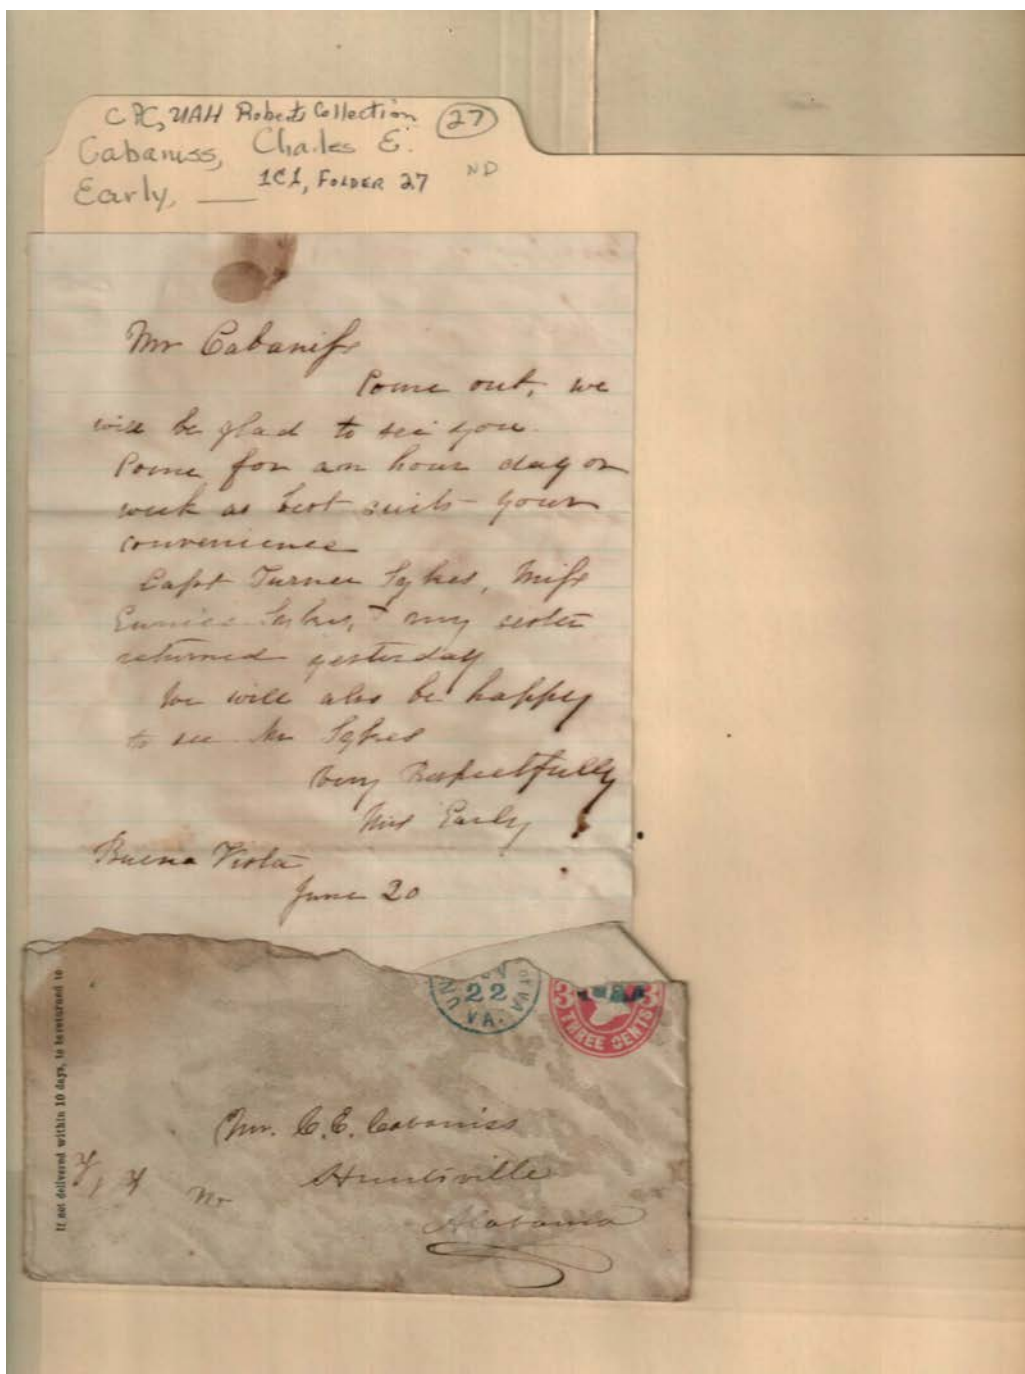 CPC, UAH Roberts Collection
27
Cabaniss, Charles E.
Early, ___ 1C1, FOLDER 27
ND
Mr Cabaniss
Come out, we
will be glad to see you.
Come for an hour day or
week as best suits your
convenience
Capt Turner Sykes, Miss
Eunice Sykes, + my sister
returned yesterday
We will also be happy
to see Mr Sykes
Very Respectfully
Miss Early
Buena Vista
June 20
22
VA.
OF VA
3 3
THREE CENTS
If not delivered within 10 days, to be returned to
Mr. C. E. Cabaniss
Huntsville
Alabama
Mr